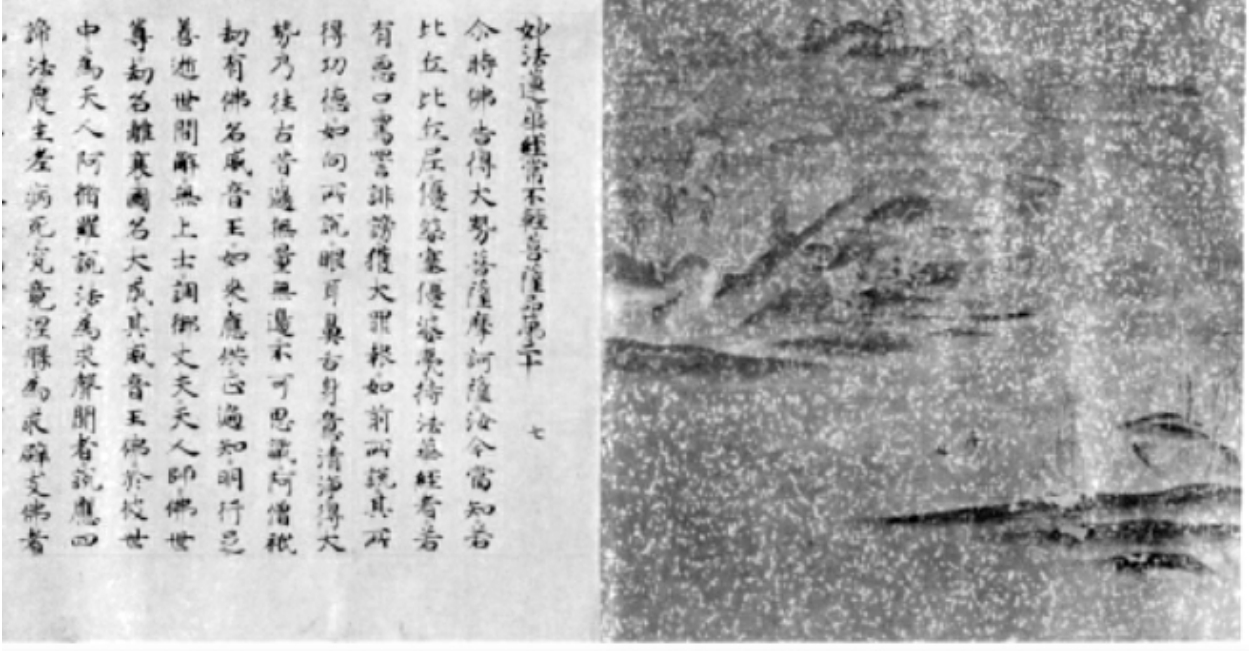 妙法蓮華經常不輕菩薩品第二十 七
尒時佛告得大勢菩薩摩訶薩汝今當知若
比丘比丘尼優婆塞優婆夷持法華經者若
有惡口罵詈誹謗獲大罪報如前所說其所
得功德如向所說眼耳鼻舌身意清淨得大
勢乃往古昔過無量無邊不可思議阿僧祇
劫有佛名威音王如来應供正遍知明行足
善逝世間解無上士調御丈夫天人師佛世
尊劫名離衰國名大成其威音王佛於彼世
中為天人阿脩羅說法為求聲聞者說應四
諦法度生老病死究竟涅槃為求辟支佛者